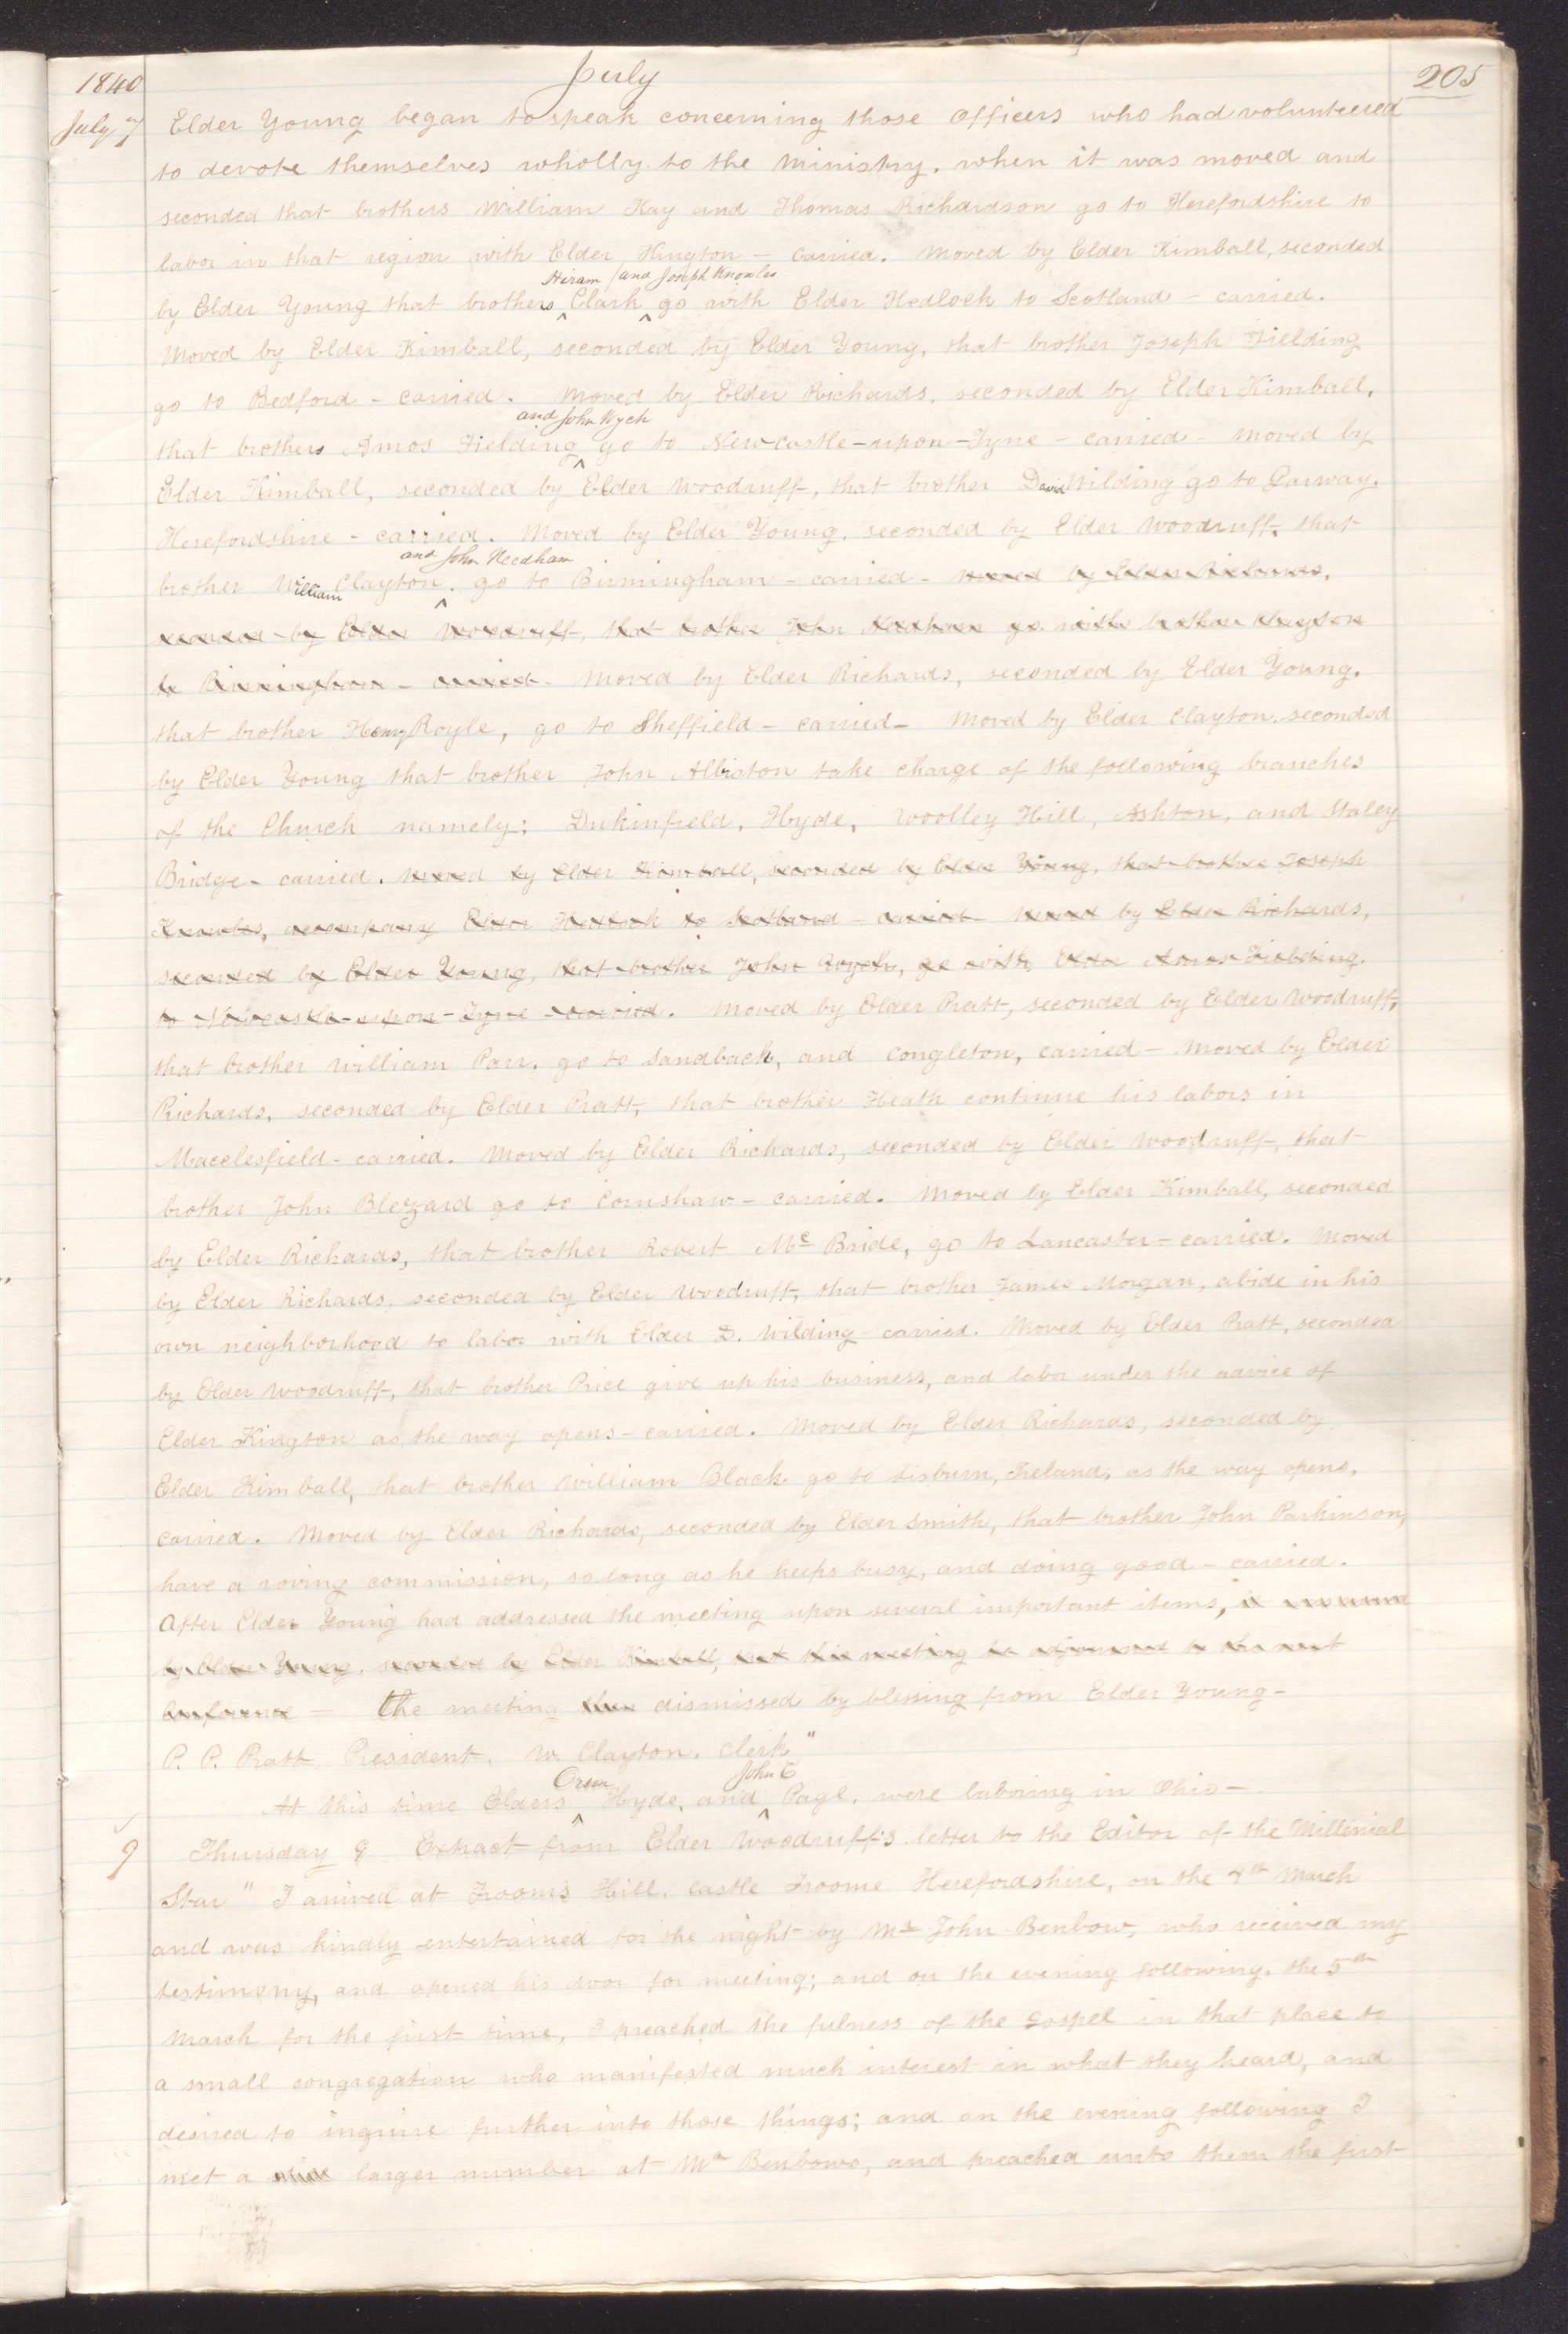 1840 July 205
July 7 Elder Young began to speak concerning those officers who had volunteered
to devote themselves wholly to the ministry, when it was moved and
seconded that brothers William Kay and Thomas Richardson go to Herefordshire to
labor in that region with Elder Kington – carried. Moved by Elder Kimball, seconded
Hiram and Joseph Knowles
by Elder Young that brothers ^ Clark ^ go with Elder Hedlock to Scotland – carried.
Moved by Elder Kimball, seconded by Elder Young, that brother Joseph Fielding
go to Bedford – carried. Moved by Elder Richards, seconded by Elder Kimball,
and John Wych
that brothers Amos Fielding ^ go to Newcastle–upon–Tyne – carried – Moved by
Elder Kimball, seconded by Elder Woodruff, that brother David Wilding go to Garway,
Herefordshire – carried. Moved by Elder Young, seconded by Elder Woodruff, that
and John Needham
brother William Clayton ^ go to Birmingham – carried – moved by Elder Richards,
seconded by Elder Woodruff, that brother John Needham go with brother Clayton
to Birmingham – carried. Moved by Elder Richards, seconded by Elder Young,
that brother Henry Royle, go to Sheffield – carried – Moved by Elder Clayton, seconded
by Elder Young that brother John Albiston take charge of the following branches
of the Church namely; Dukinfield, Hyde, Woolley Hill, Ashton, and Staley
Bridge – carried. moved by Elder Kimball, seconded by Elder Young, that brother Joseph
Knowles, accompany Elder Hedlock to Scotland – carried – moved by Elder Richards,
seconded by Elder Young, that brother John Wych, go with Elder Amos Fielding
to Newcastle–upon–Tyne – carried. Moved by Elder Pratt, seconded by Elder Woodruff,
that brother William Parr, go to Sandback, and Congleton, carried – Moved by Elder
Richards, seconded by Elder Pratt, that brother Heath continue his labors in
Macclesfield – carried. Moved by Elder Richards, seconded by Elder Woodruff, that
brother John Blezzard go to Cornshaw – carried. Moved by Elder Kimball, seconded
by Elder Richards, that brother Robert Mc Bride, go to Lancaster – carried. Moved
by Elder Richards, seconded by Elder Woodruff, that brother James Morgan, abide in his
own neighborhood to labor with Elder D. Wilding – carried. Moved by Elder Pratt, seconded
by Elder Woodruff, that brother Price give up his business, and labor under the advice of
Elder Kington as the way opens – carried. Moved by Elder Richards, seconded by
Elder Kimball, that brother William Black go to Lisburn, Ireland, as the way opens,
carried. Moved by Elder Richards, seconded by Elder Smith, that brother John Parkinson,
have a roving commission, so long as he keeps busy, and doing good – carried.
After Elder Young had addressed the meeting upon several important items, it was moved
by Elder Young, seconded by Elder Kimball, that this meeting be adjourned to the next
Conference – the meeting then dismissed by blessing from Elder Young –
P. P. Pratt, President, W. Clayton. Clerk"
Orson John E
At this time Elders ^ Hyde, and ^ Page, were laboring in Ohio –
9 Thursday 9 Extract from Elder Woodruff's letter to the Editor of the Millenial
Star "I arrived at Froom's Hill, Castle Froome Herefordshire, on the 4th March
and was kindly entertained for the night by Mr John Benbow, who received my
testimony, and opened his door for meeting; and on the evening following, the 5th
March for the first time, I preached the fulness of the Gospel in that place to
a small congregation who manifested much interest in what they heard, and
desired to inquire further into those things; and on the evening following I
met a larger number at Mr Benbows, and preached unto them the first